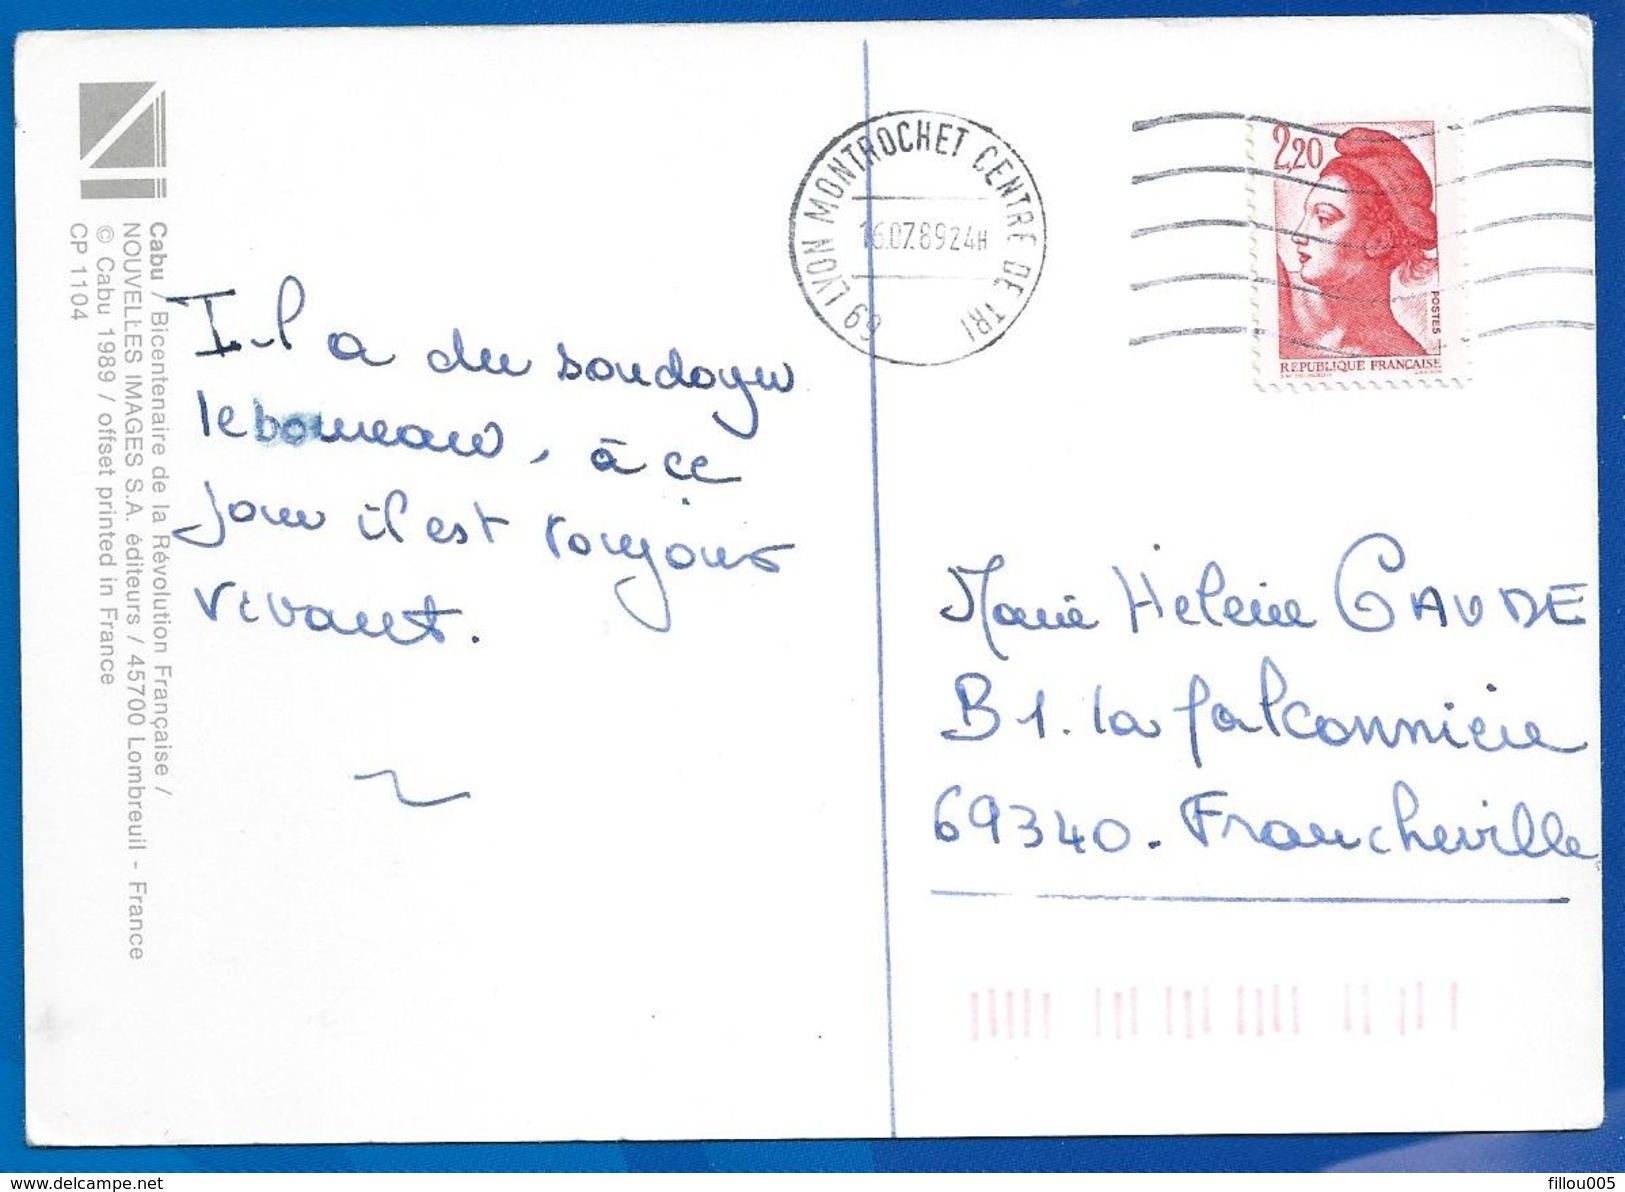 Cabu / Bicentenaire de la Révolution Française /
NOUVELLES IMAGES S.A. éditeurs / 45700 Lombreuil - France
© Cabu 1989 / offset printed in France
CP 1104
Il a du soudoyer
le bourreau, à ce
jour il est toujours
vivant.
69 LYON MONTROCHET CENTRE DE TRI
16.07.89 24H
2,20
POSTES
REPUBLIQUE FRANÇAISE
Marie Helene GAUDE
B1. la falconniere
69340. Francheville
delcampe.net
fillou005